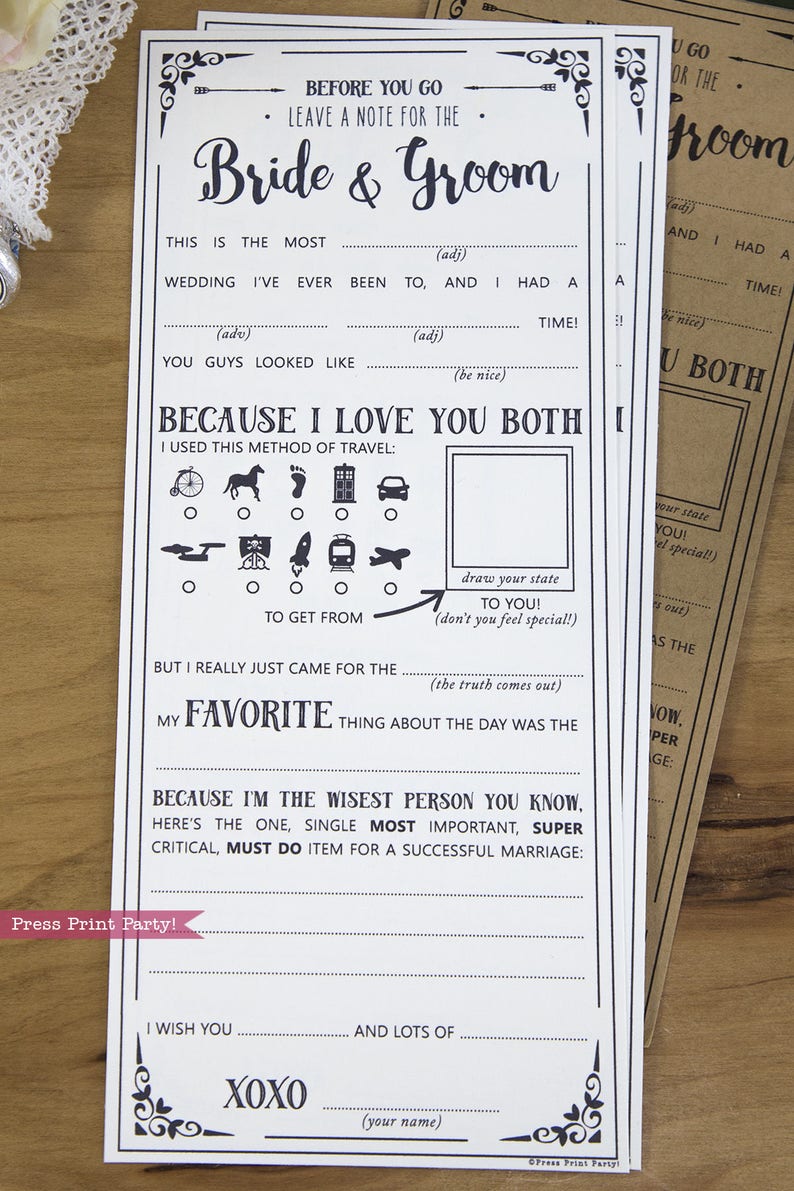 BEFORE YOU GO
• LEAVE A NOTE FOR THE •
Bride & Groom
THIS IS THE MOST
(adj)
WEDDING I'VE EVER BEEN TO, AND I HAD A
TIME!
(adv) (adj)
YOU GUYS LOOKED LIKE
(be nice)
BECAUSE I LOVE YOU BOTH
I USED THIS METHOD OF TRAVEL:
draw your state
TO GET FROM
TO YOU!
(don't you feel special!)
BUT I REALLY JUST CAME FOR THE
(the truth comes out)
MY FAVORITE THING ABOUT THE DAY WAS THE
BECAUSE I'M THE WISEST PERSON YOU KNOW,
HERE'S THE ONE, SINGLE MOST IMPORTANT, SUPER
CRITICAL, MUST DO ITEM FOR A SUCCESSFUL MARRIAGE:
I WISH YOU AND LOTS OF
XOXO
(your name)
©Press Print Party!
Press Print Party!
U GO
OR THE
Groom
(adj)
AND I HAD A
TIME!
(be nice)
U BOTH
your state
YOU!
el special!)
s out)
AS THE
NOW,
SUPER
GE:
A
E!